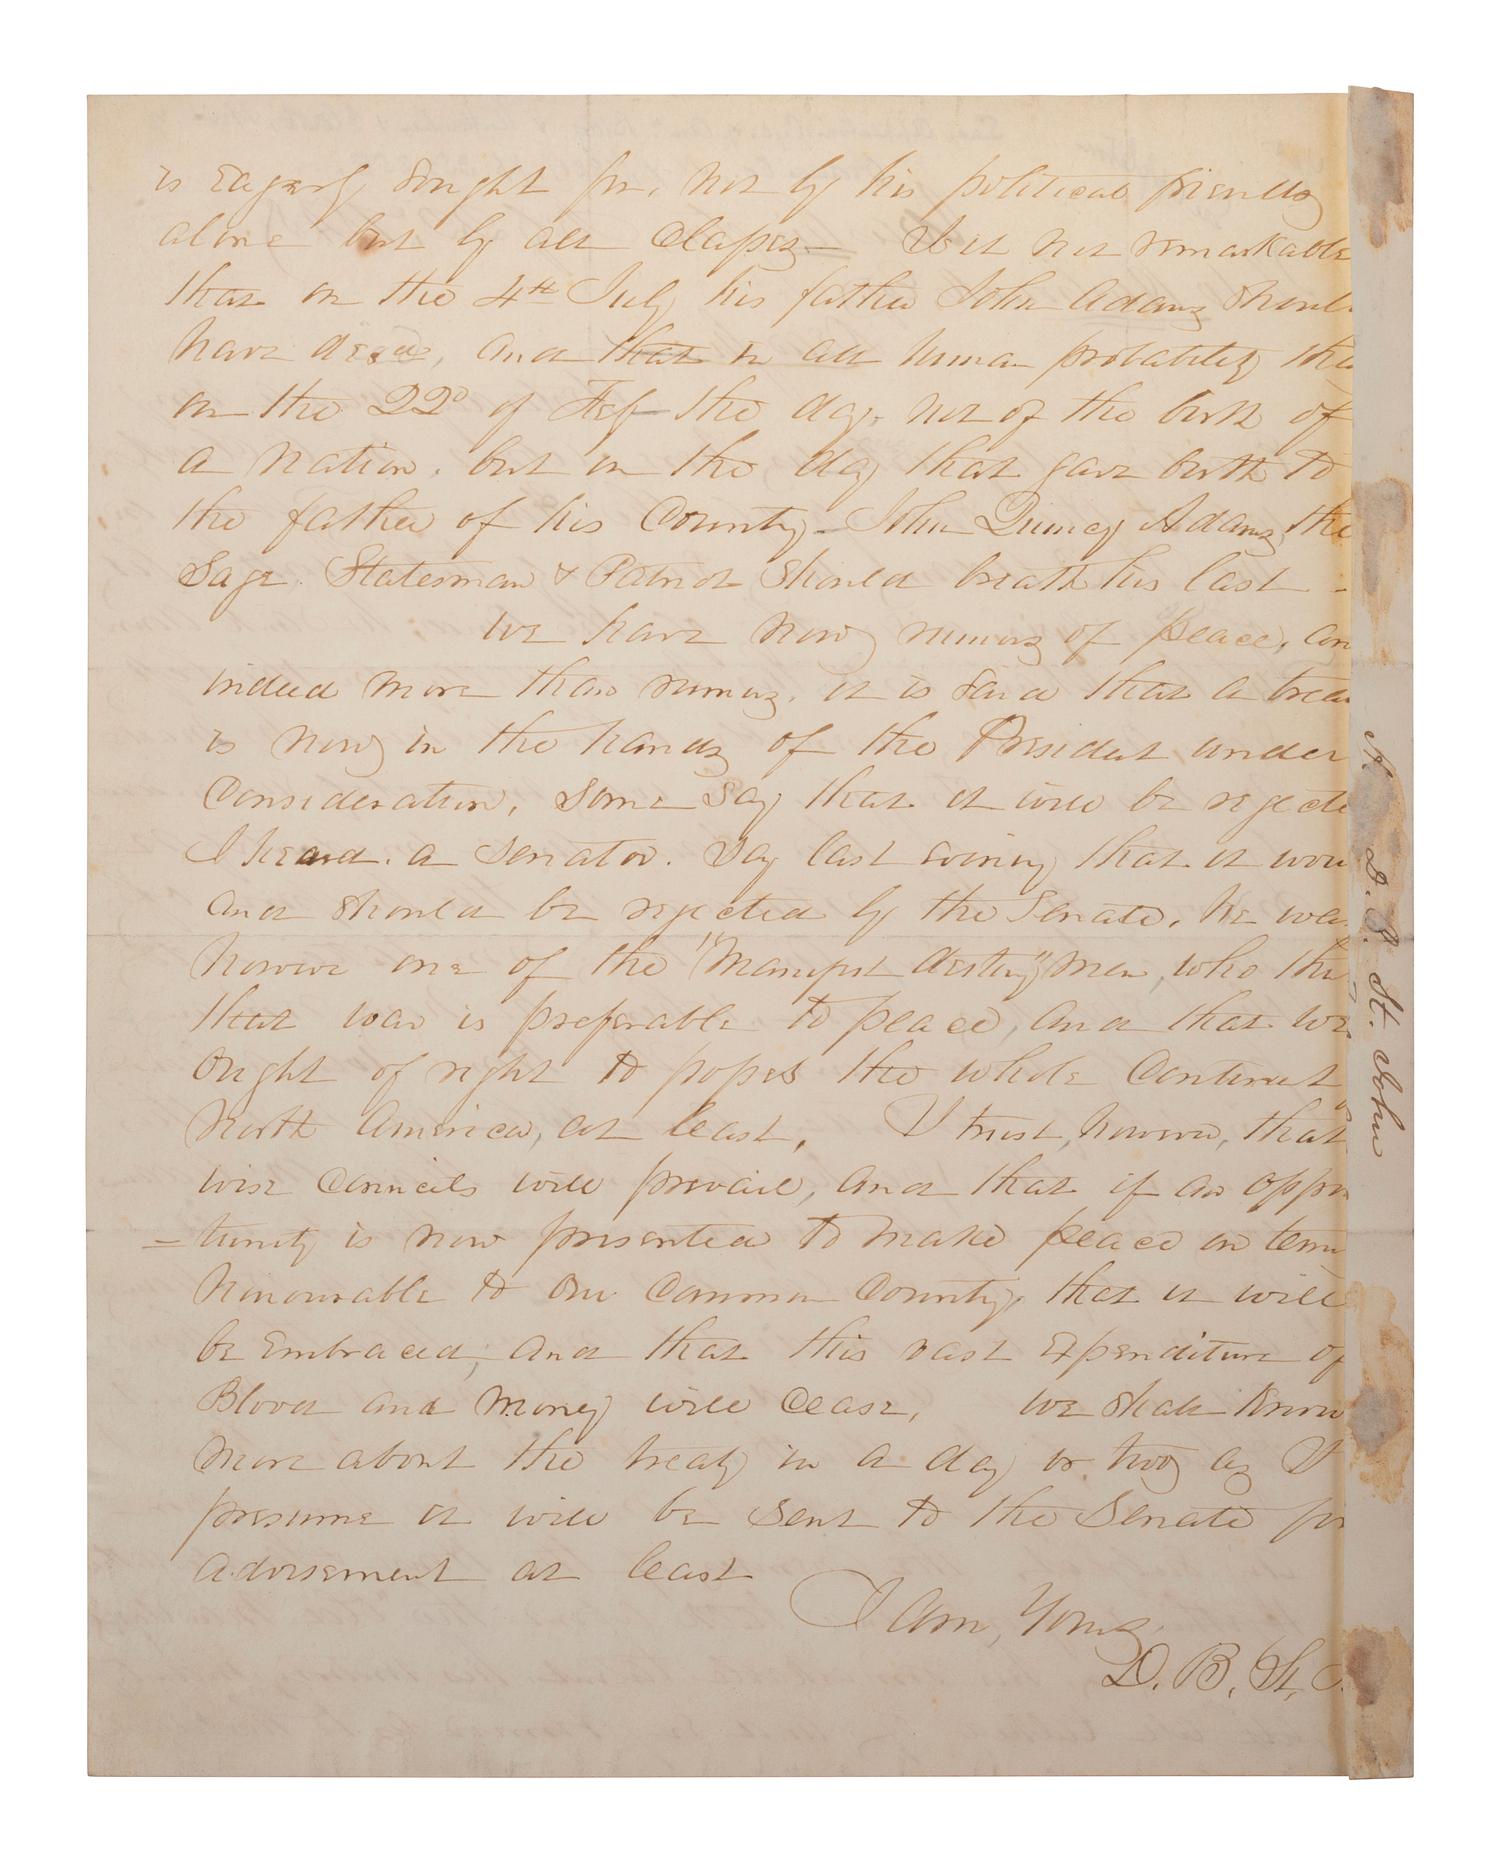 is eagerly sought for, not by his political friends
alone but by all classes — Is it not remarkable
that on the 4th July his father John Adams shoul
have died, and that in all human probability tha
on the 22d of Feb the day, not of the birth of
a nation, but on the day that gave birth to
the father of his County - John Quincy Adams, the
Sage. Statesman & Patriot should breath his last -
We have now rumors of peace, an
indeed more than rumors, it is said that a trea
is now in the hands of the President under
Consideration, some say that it will be rejecte
I heard a Senator. say last evening that it wou
and should be rejected by the Senate, he wa
however one of the "Manifest destiny" men, who thi
that war is preferable to peace, and that we
ought of right to posses the whole Continent
North America, at least, I trust, however, that
wise Councils will prevail, and that if an oppor
= tunity is now presented to make peace on term
honourable to our common County, that it will
be Embraced, and that this vast Expenditure of
Blood and money will cease, We shall know
more about the treaty in a day or two as I
presume it will be sent to the Senate for
advisement at least
I am, Yours
D. B. St. J.
D. B. St. John